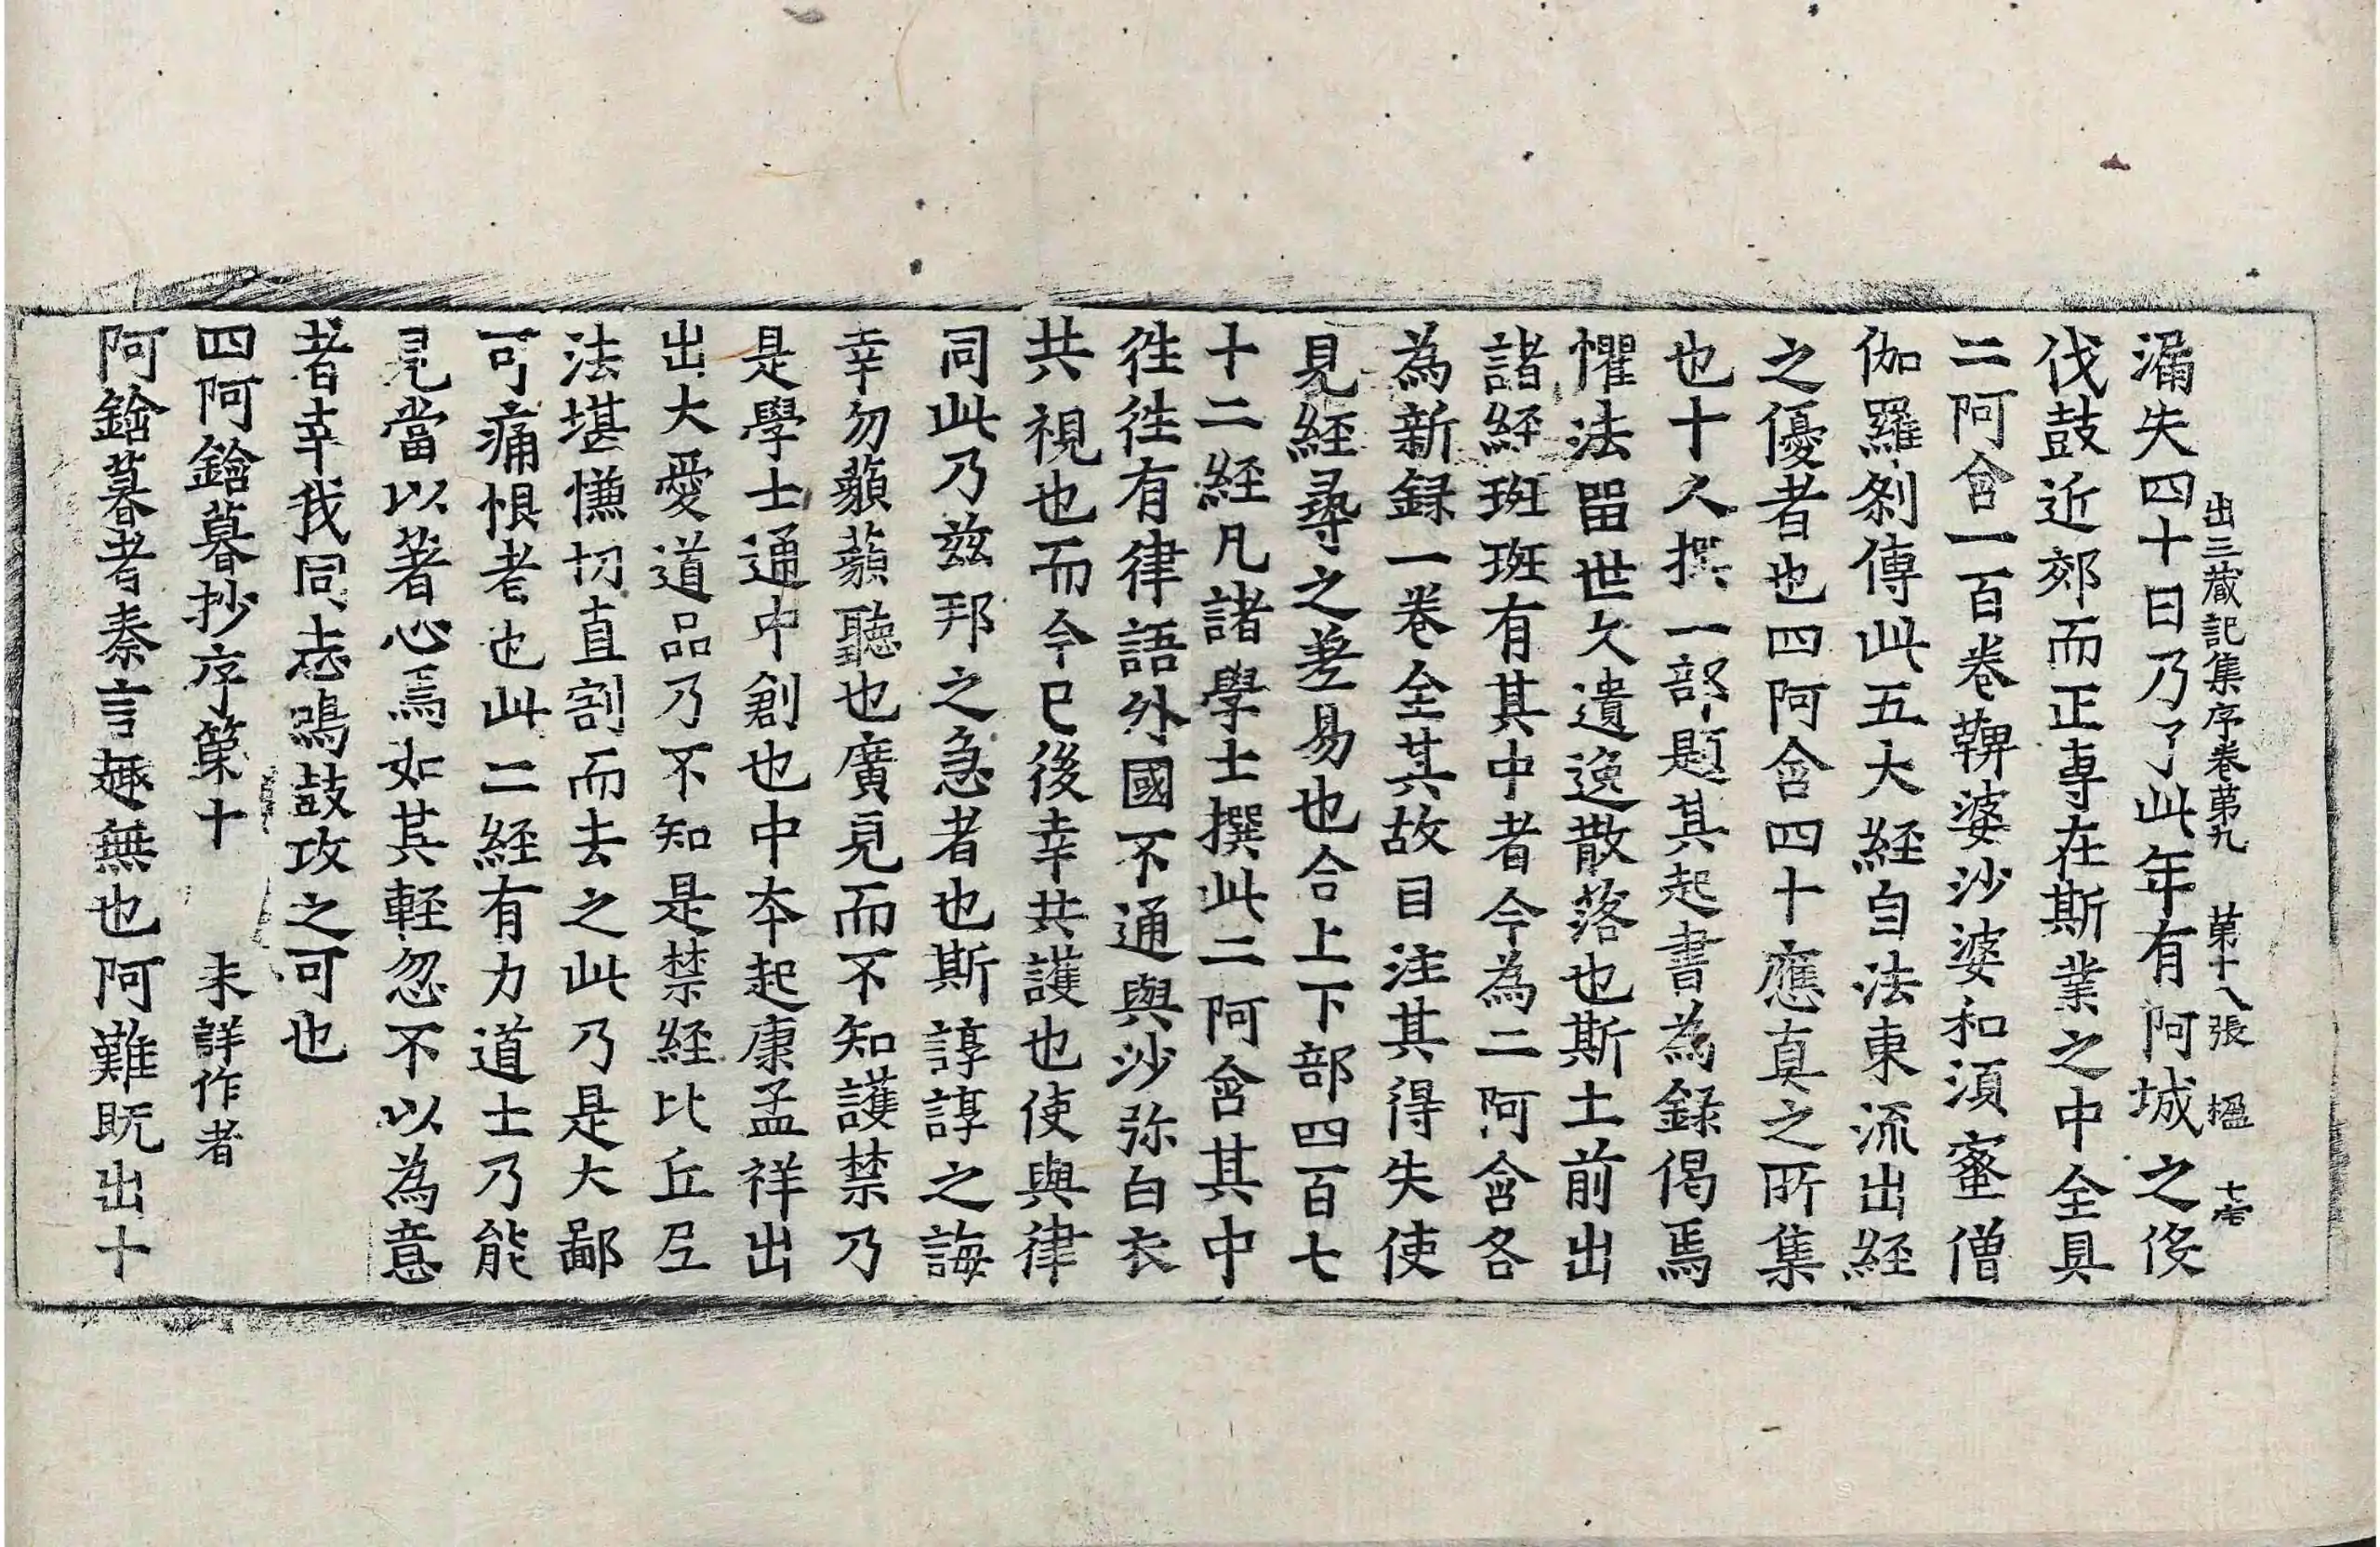 出三藏記集序卷第九　第十八張　楹
漏失四十日乃了此年有阿城之役
伐鼓近郊而正專在斯業之中全具
二阿含一百卷鞞婆沙婆和須蜜僧
伽羅剎傳此五大經自法東流出經
之優者也四阿含四十應真之所集
也十人撰一部題其起書為録偈焉
懼法留世久遺逸散落也斯土前出
諸經班班有其中者今為二阿含各
為新録一卷全其故目注其得失使
見經尋之差易也合上下部四百七
十二經凡諸學士撰此二阿含其中
徃徃有律語外國不通與沙弥白衣
共視也而今已後幸共護也使與律
同此乃茲邦之急者也斯諄諄之誨
幸勿藐藐聽也廣見而不知護禁乃
是學士通中創也中本起康孟祥出
出大愛道品乃不知是禁經比丘尼
法堪慊切直割而去之此乃是大鄙
可痛恨者也此二經有力道士乃能
見當以著心焉如其輕忽不以為意
者幸我同志鳴鼓攻之可也
四阿鋡暮抄序第十　未詳作者
阿鋡暮者秦言趣無也阿難既出十